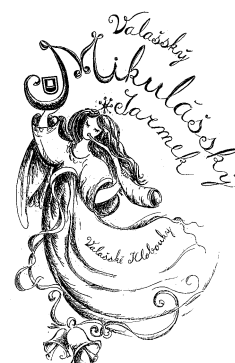 Valašský
Mikulášský
Jarmek
Valašské Klobouky